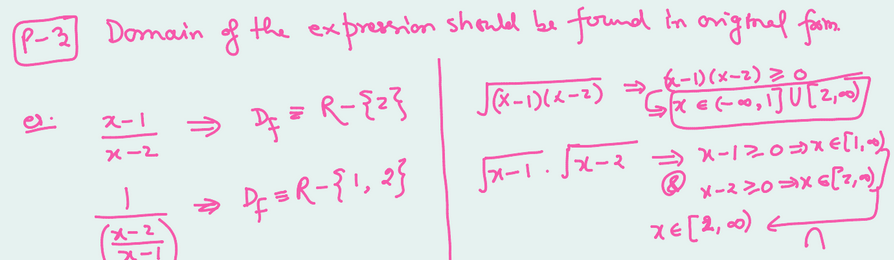 P-3 Domain of the expression should be found in original form
es. x-1/x-2 ⇒ D_f ≡ R-{2}
1/((x-2)/(x-1)) ⇒ D_f ≡ R-{1, 2}
√((x-1)(x-2)) ⇒ (x-1)(x-2) ≥ 0
x ∈ (-∞, 1] U [2, ∞)
√(x-1) · √(x-2) ⇒ x-1 ≥ 0 ⇒ x ∈ [1, ∞)
& x-2 ≥ 0 ⇒ x ∈ [2, ∞)
x ∈ [2, ∞) ← ∩